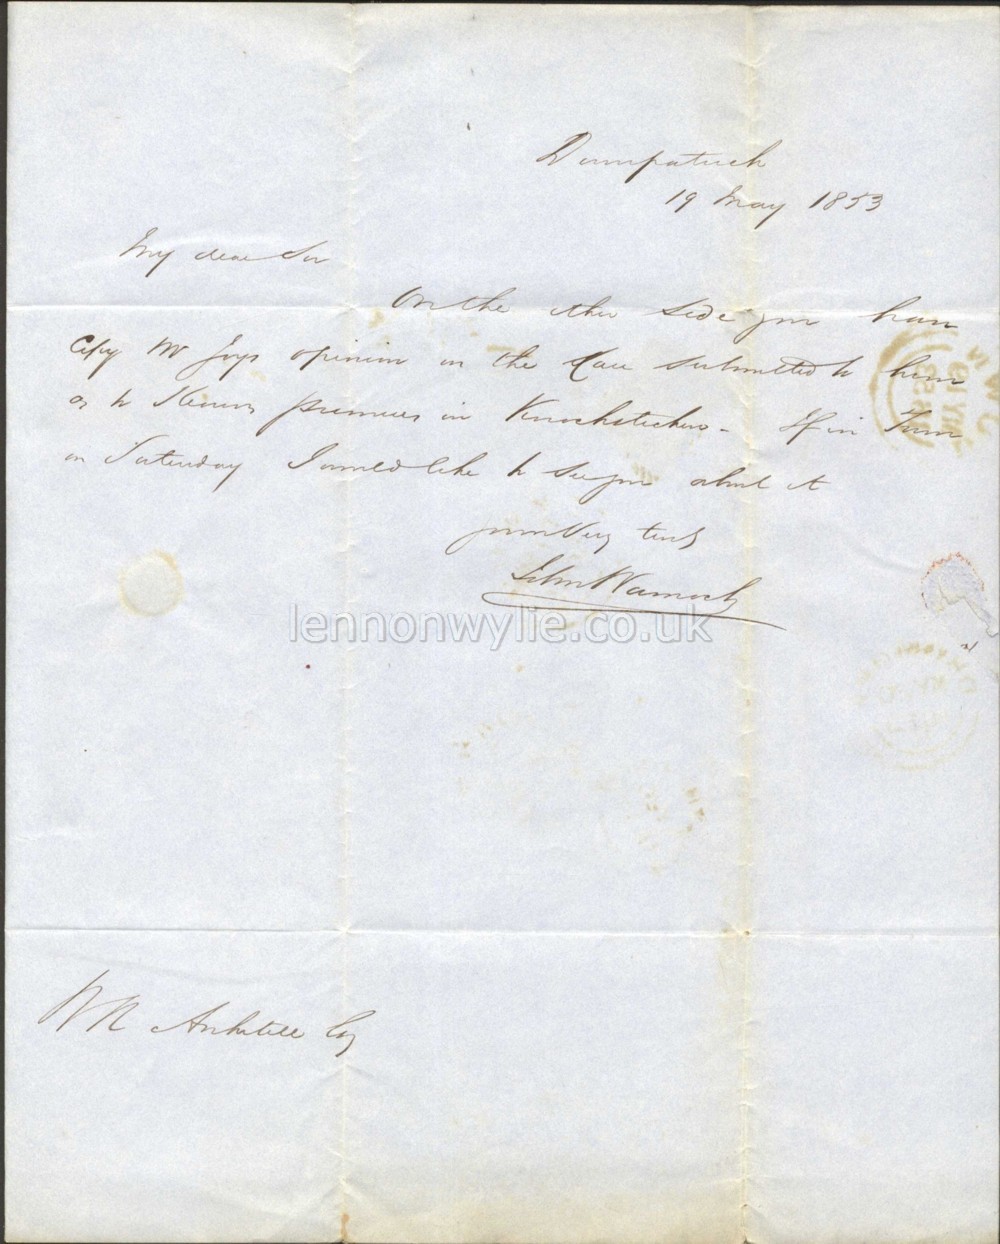 Downpatrick
19 May 1853
My dear Sir
On the other side you have
Copy Mr Joys opinion in the Case submitted to him
as to premises in Knocksticken - If in Town
on Saturday I would like to see you about it
yours Very truly
John Warnock
lennonwylie.co.uk
W R Anketell Esq